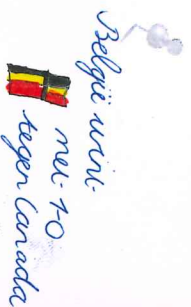 België wint
met 1-0
tegen Canada